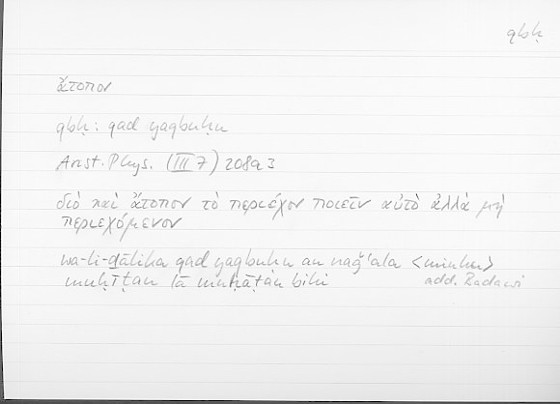 qbḥ
ἄτοπον
qbḥ: qad yaqbuḥu
Arist. Phys. (III 7) 208a3
διὸ καὶ ἄτοπον τὸ περιέχον ποιεῖν αὐτὸ ἀλλὰ μὴ
περιεχόμενον
wa-li-ḏālika qad yaqbuḥu an naǧʿala <minhu>
muḥīṭan lā muḥāṭan bihi add. Badawi